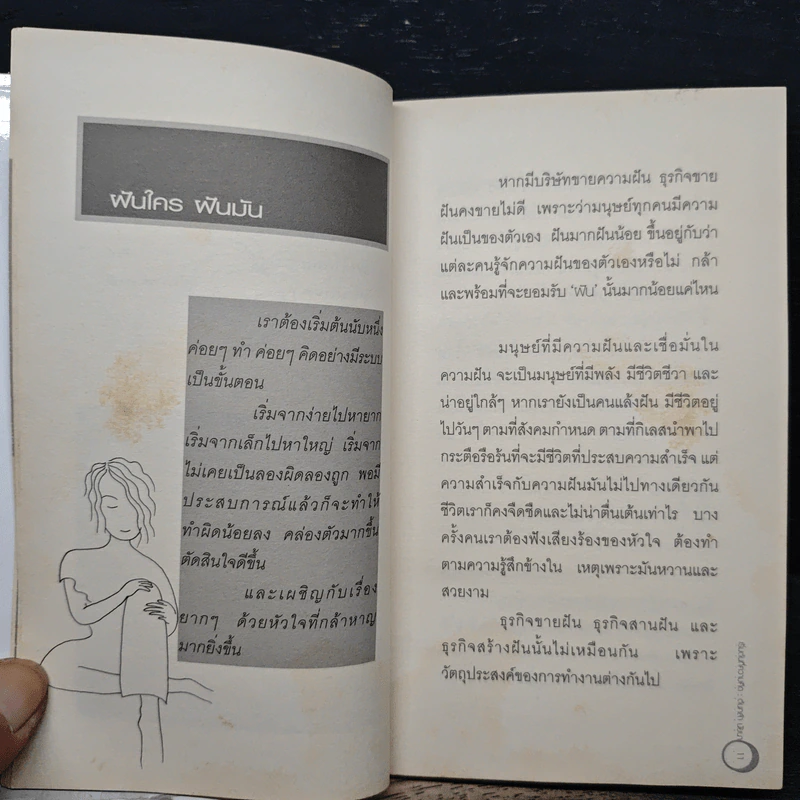 ฝันใคร ฝันมัน
เราต้องเริ่มต้นนับหนึ่ง
ค่อยๆ ทำ ค่อยๆ คิดอย่างมีระบบ
เป็นขั้นตอน
เริ่มจากง่ายไปหายาก
เริ่มจากเล็กไปหาใหญ่ เริ่มจาก
ไม่เคยเป็นลองผิดลองถูก พอมี
ประสบการณ์แล้วก็จะทำให้
ทำผิดน้อยลง คล่องตัวมากขึ้น
ตัดสินใจดีขึ้น
และเผชิญกับเรื่อง
ยากๆ ด้วยหัวใจที่กล้าหาญ
มากยิ่งขึ้น
หากมีบริษัทขายความฝัน ธุรกิจขาย
ฝันคงขายไม่ดี เพราะว่ามนุษย์ทุกคนมีความ
ฝันเป็นของตัวเอง ฝันมากฝันน้อย ขึ้นอยู่กับว่า
แต่ละคนรู้จักความฝันของตัวเองหรือไม่ กล้า
และพร้อมที่จะยอมรับ 'ฝัน' นั้นมากน้อยแค่ไหน
มนุษย์ที่มีความฝันและเชื่อมั่นใน
ความฝัน จะเป็นมนุษย์ที่มีพลัง มีชีวิตชีวา และ
น่าอยู่ใกล้ๆ หากเรายังเป็นคนแล้งฝัน มีชีวิตอยู่
ไปวันๆ ตามที่สังคมกำหนด ตามที่กิเลสนำพาไป
กระตือรือร้นที่จะมีชีวิตที่ประสบความสำเร็จ แต่
ความสำเร็จกับความฝันมันไม่ไปทางเดียวกัน
ชีวิตเราก็คงจืดชืดและไม่น่าตื่นเต้นเท่าไร บาง
ครั้งคนเราต้องฟังเสียงร้องของหัวใจ ต้องทำ
ตามความรู้สึกข้างใน เหตุเพราะมันหวานและ
สวยงาม
ธุรกิจขายฝัน ธุรกิจสานฝัน และ
ธุรกิจสร้างฝันนั้นไม่เหมือนกัน เพราะ
วัตถุประสงค์ของการทำงานต่างกันไป
11